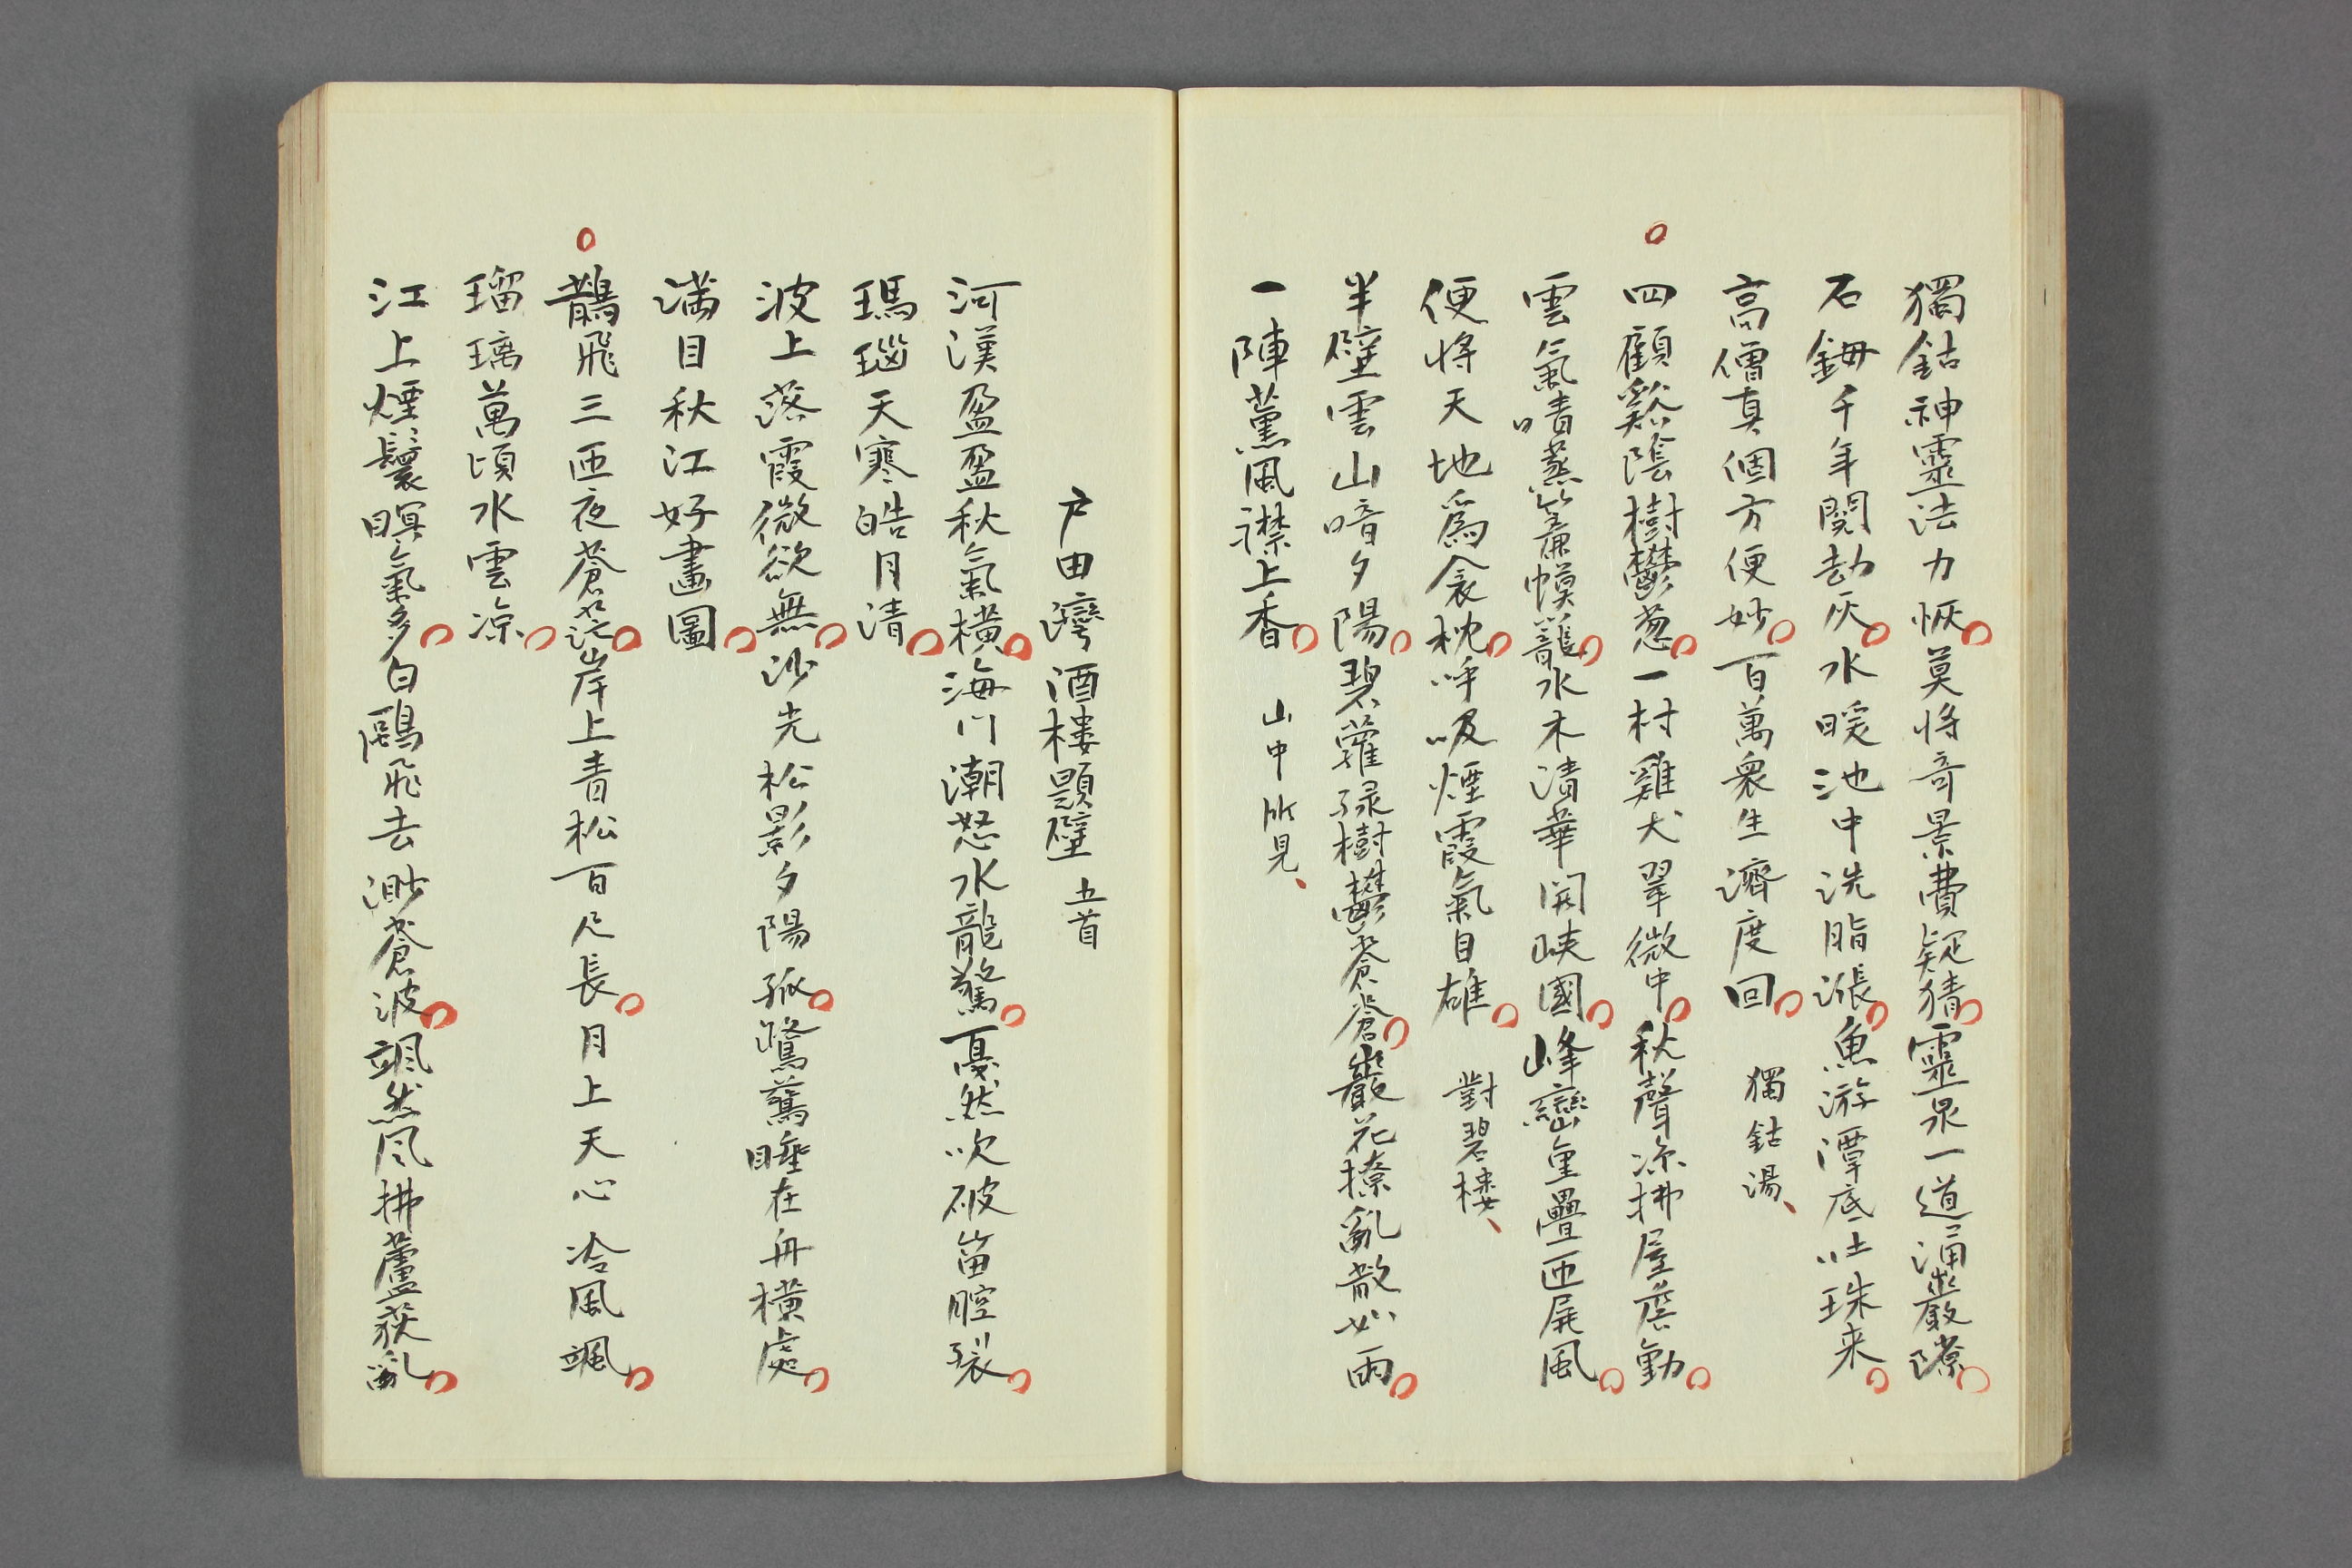 獨鈷神靈法力恢莫將奇景費疑猜靈泉一道涌巖隙
石鉧千年閱劫灰水暖池中洗脂漲魚游潭底吐珠来
高僧真個方便妙百萬衆生濟度回　獨鈷湯、
四顧谿陰樹鬱葱一村雞犬翠微中秋聲凉拂屋簷動
雲氣晴蒸簾幙籠水木清華開峽國峰巒重疊匝屏風
便將天地爲衾枕呼吸煙霞氣自雄　對碧樓、
半壁雲山暗夕陽碧蘿緑樹鬱蒼蒼巖花撩亂散如雨
一陣薰風襟上香　山中所見、
戸田灣酒楼題壁 五首
河漢盈盈秋氣橫海門潮怒水龍驚戞然吹破笛腔裂
瑪瑙天寒皓月清
波上落霞微欲無沙光松影夕陽孤鷺鷥睡在舟橫處
満目秋江好畫圖
鵲飛三匝夜蒼茫岸上青松百尺長月上天心冷風颯
瑠璃萬頃水雲凉
江上煙鬟暝氣多白鷗飛去渺蒼波颯然风拂蘆荻亂